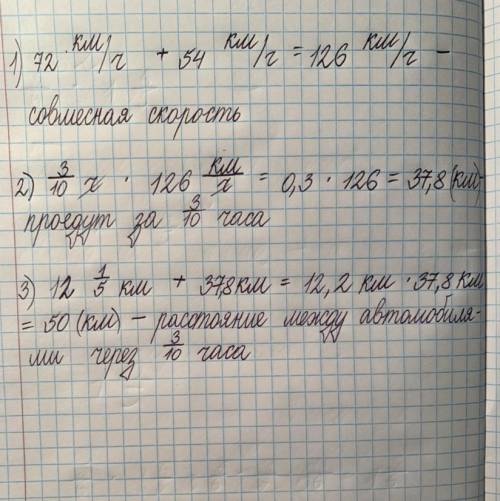 1) 72 км/ч + 54 км/ч = 126 км/ч –
совмесная скорость
2) 3/10 ч · 126 км/ч = 0,3 · 126 = 37,8 (км)-
проедут за 3/10 часа
3) 12 1/5 км + 37,8 км = 12,2 км · 37,8 км
= 50 (км) – расстояние между автомобиля-
ми через 3/10 часа